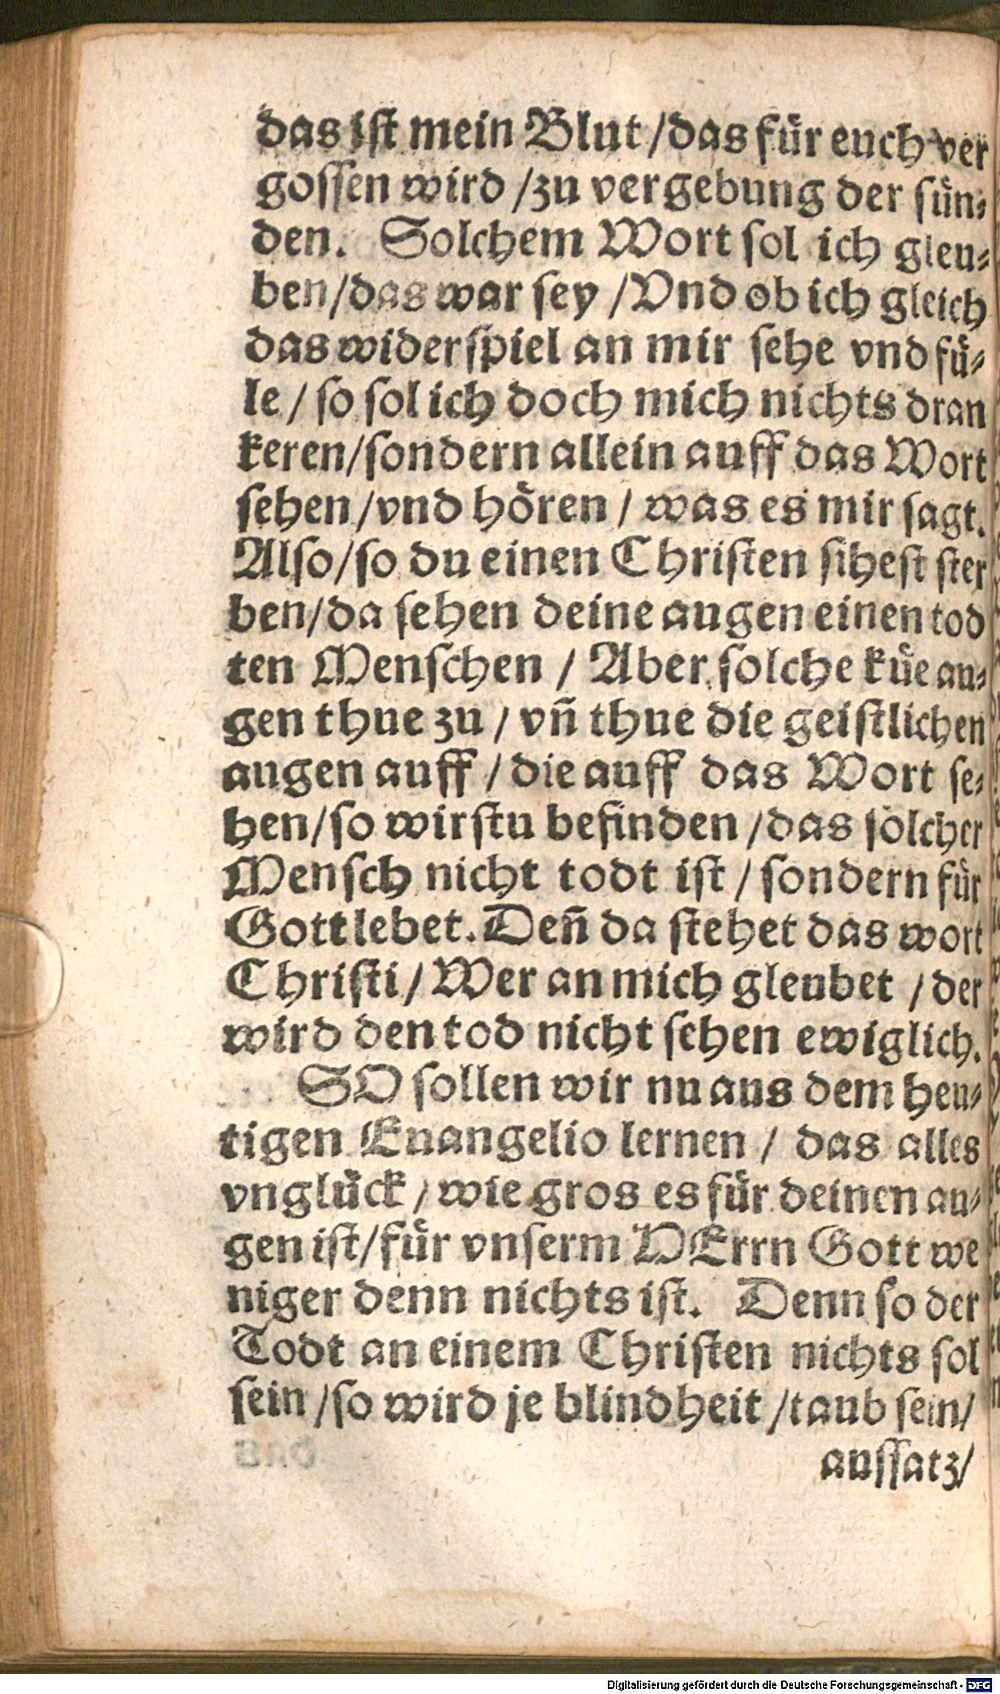 das ist mein Blut /das für euch ver
gossen wird /zu vergebung der sün⸗
den. Solchem Wort sol ich gleu⸗
ben/das war sey /Vnd ob ich gleich
das widerspiel an mir sehe vnd fü⸗
le / so sol ich doch mich nichts dran
keren/sondern allein auff das Wort
sehen/vnd hören / was es mir sagt.
Also/so du einen Christen sihest ster
ben/da sehen deine augen einen tod
ten Menschen / Aber solche küe au⸗
gen thue zu / vñ thue die geistlichen
augen auff / die auff das Wort se⸗
hen/so wirstu befinden /das solcher
Mensch nicht todt ist / sondern für
Gott lebet. Deñ da stehet das wort
Christi / Wer an mich gleubet / der
wird den tod nicht sehen ewiglich.
SO sollen wir nu aus dem heu⸗
tigen Euangelio lernen / das alles
vnglück / wie gros es für deinen au⸗
gen ist/für vnserm HErrn Gott we
niger denn nichts ist. Denn so der
Todt an einem Christen nichts sol
sein /so wird je blindheit /taub sein/
aussatz/
Digitalisierung gefördert durch die Deutsche Forschungsgemeinschaft - DFG